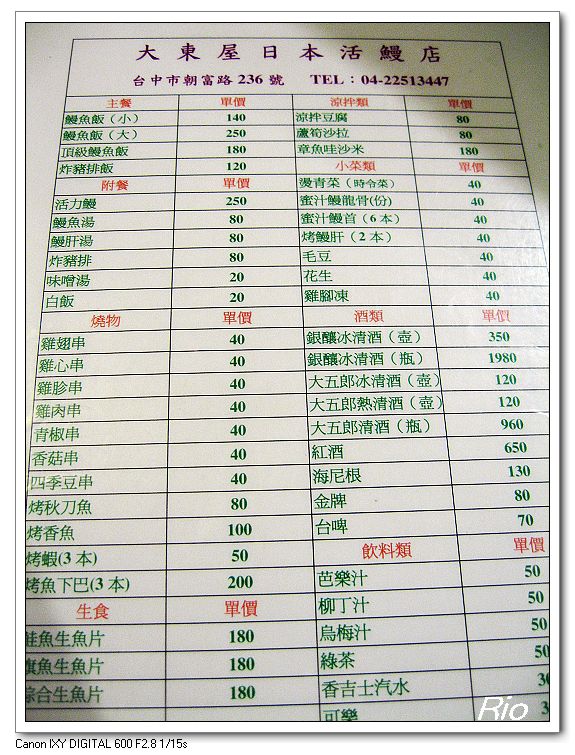 大東屋日本活鰻店
台中市朝富路 236 號 TEL：04-22513447
主餐 單價 涼拌類 單價
鰻魚飯（小） 140 涼拌豆腐 80
鰻魚飯（大） 250 蘆筍沙拉 80
頂級鰻魚飯 180 章魚哇沙米 180
炸豬排飯 120 小菜類 單價
附餐 單價 燙青菜（時令菜） 40
活力鰻 250 蜜汁鰻龍骨(份) 40
鰻魚湯 80 蜜汁鰻首（6 本） 40
鰻肝湯 80 烤鰻肝（2 本） 40
炸豬排 80 毛豆 40
味噌湯 20 花生 40
白飯 20 雞腳凍 40
燒物 單價 酒類 單價
雞翅串 40 銀釀冰清酒（壺） 350
雞心串 40 銀釀冰清酒（瓶） 1980
雞胗串 40 大五郎冰清酒（壺） 120
雞肉串 40 大五郎熱清酒（壺） 120
青椒串 40 大五郎清酒（瓶） 960
香菇串 40 紅酒 650
四季豆串 40 海尼根 130
烤秋刀魚 80 金牌 80
烤香魚 100 台啤 70
烤蝦(3 本) 50 飲料類 單價
烤魚下巴(3 本) 200 芭樂汁 50
生食 單價 柳丁汁 50
鮭魚生魚片 180 烏梅汁 50
旗魚生魚片 180 綠茶 50
綜合生魚片 180 香吉士汽水 30
可樂
Rio
Canon IXY DIGITAL 600 F2.8 1/15s